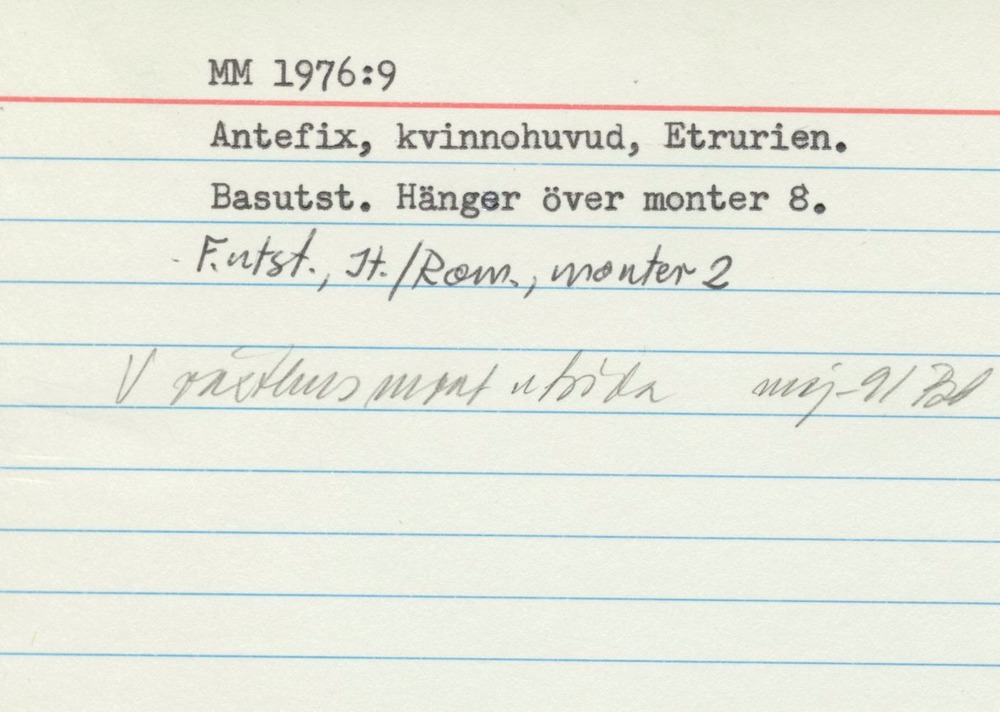 MM 1976:9
Antefix, kvinnohuvud, Etrurien.
Basutst. Hänger över monter 8.
F.utst., It./Rom., monter 2
V växthus mont utsida maj-91